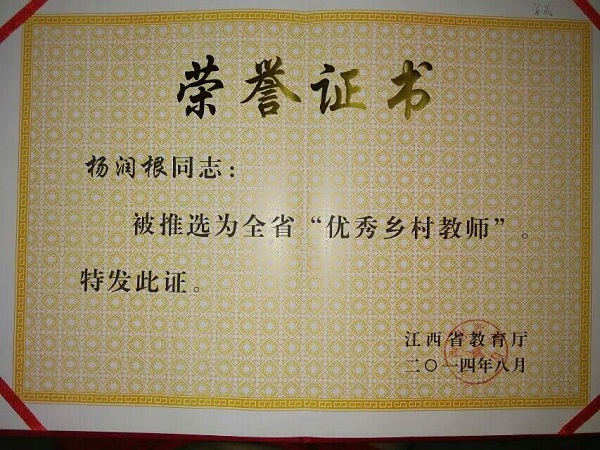 荣誉证书
杨润根同志：
被推选为全省“优秀乡村教师”。
特发此证。
江西省教育厅
二〇一四年八月